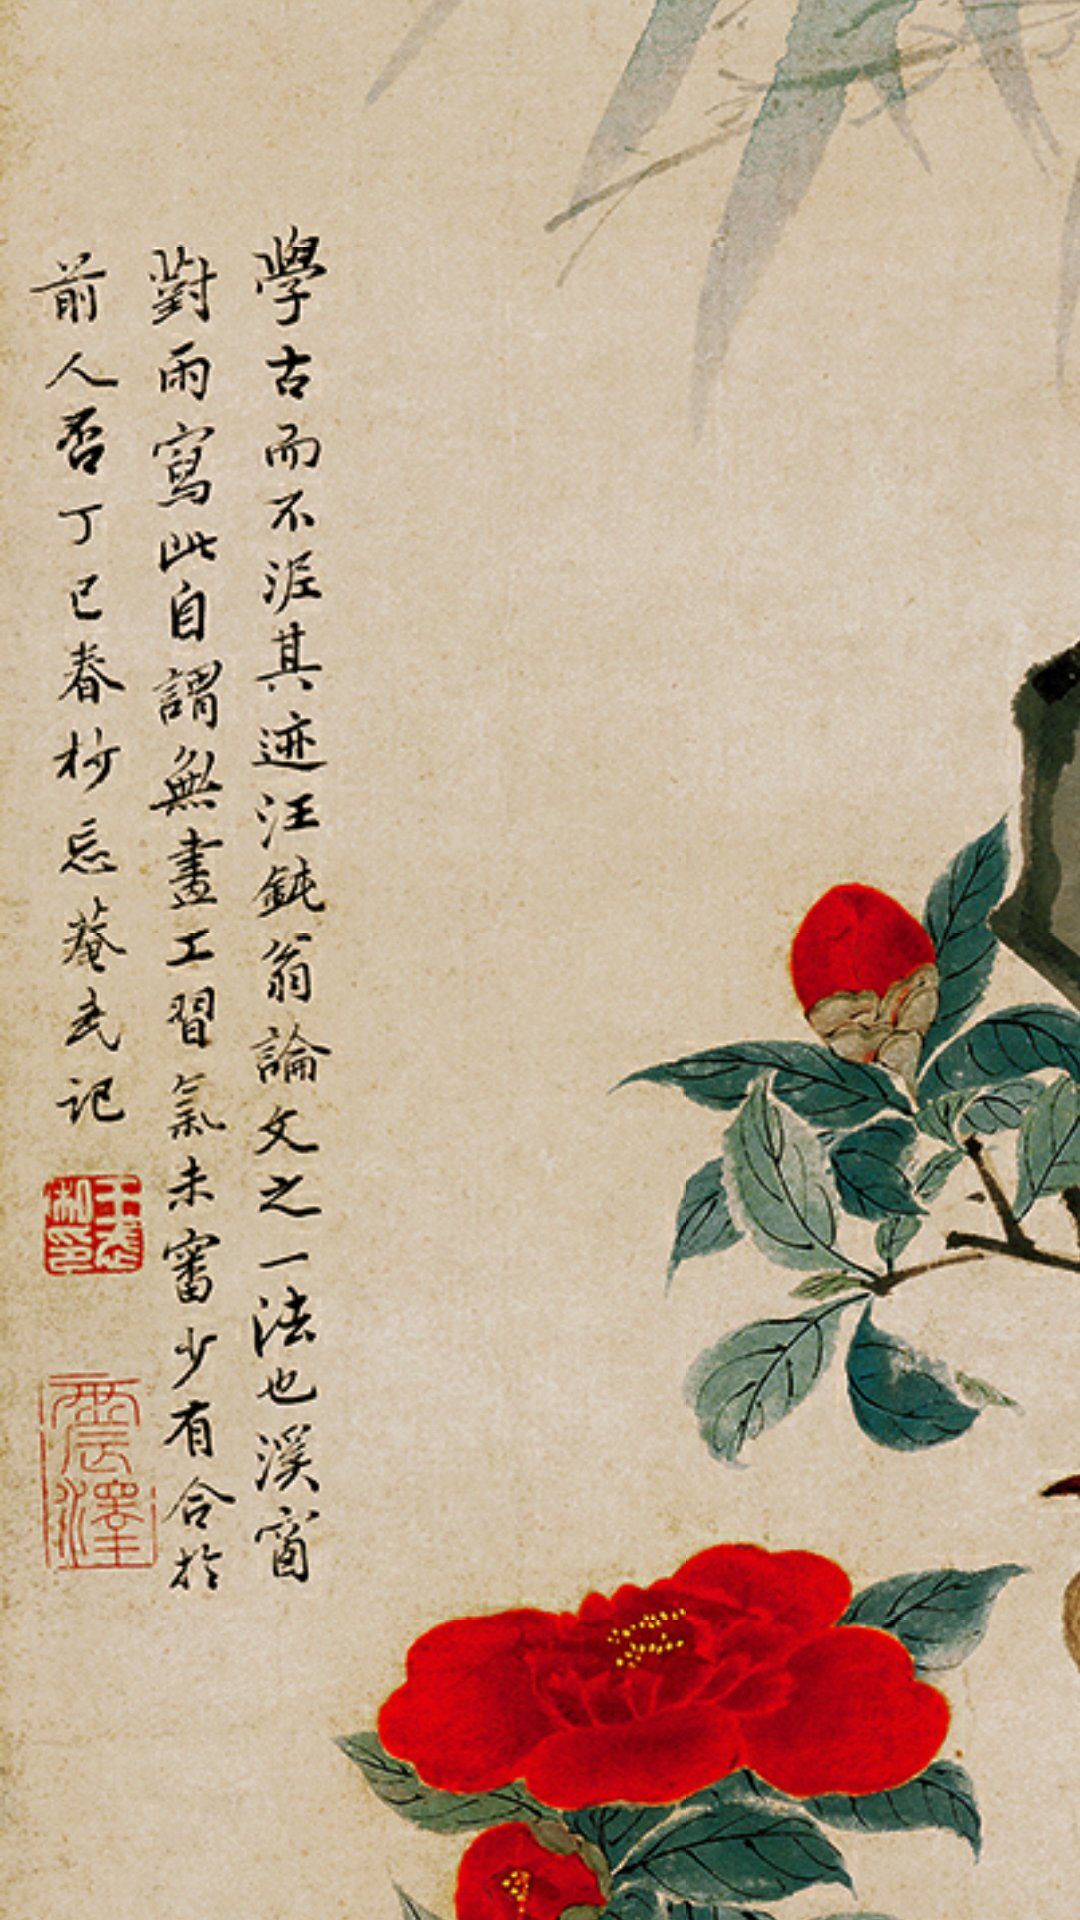 學古而不泥其迹汪鈍翁論文之一法也溪窗
對雨寫此自謂無畫工習氣未審少有合於
前人否丁巳春杪忘菴武記
王武之印
震澤